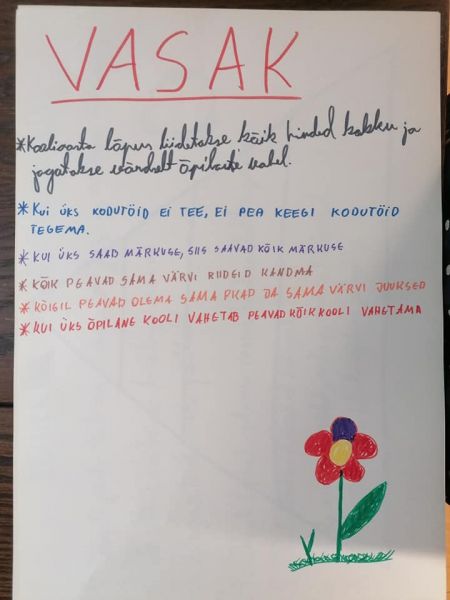 VASAK
*Kooliaasta lõpus liidetakse kõik hinded kokku ja
jagatakse võrdselt õpilaste vahel.
*KUI ÜKS KODUTÖID EI TEE, EI PEA KEEGI KODUTÖID
TEGEMA.
*KUI ÜKS SAAD MÄRKUSE, SIIS SAAVAD KÕIK MÄRKUSE
*KÕIK PEAVAD SAMA VÄRVI RIIDEID KANDMA
*KÕIGIL PEAVAD OLEMA SAMA PIKAD JA SAMA VÄRVI JUUKSED
*KUI ÜKS ÕPILANE KOOLI VAHETAB PEAVAD KÕIK KOOLI VAHETAMA